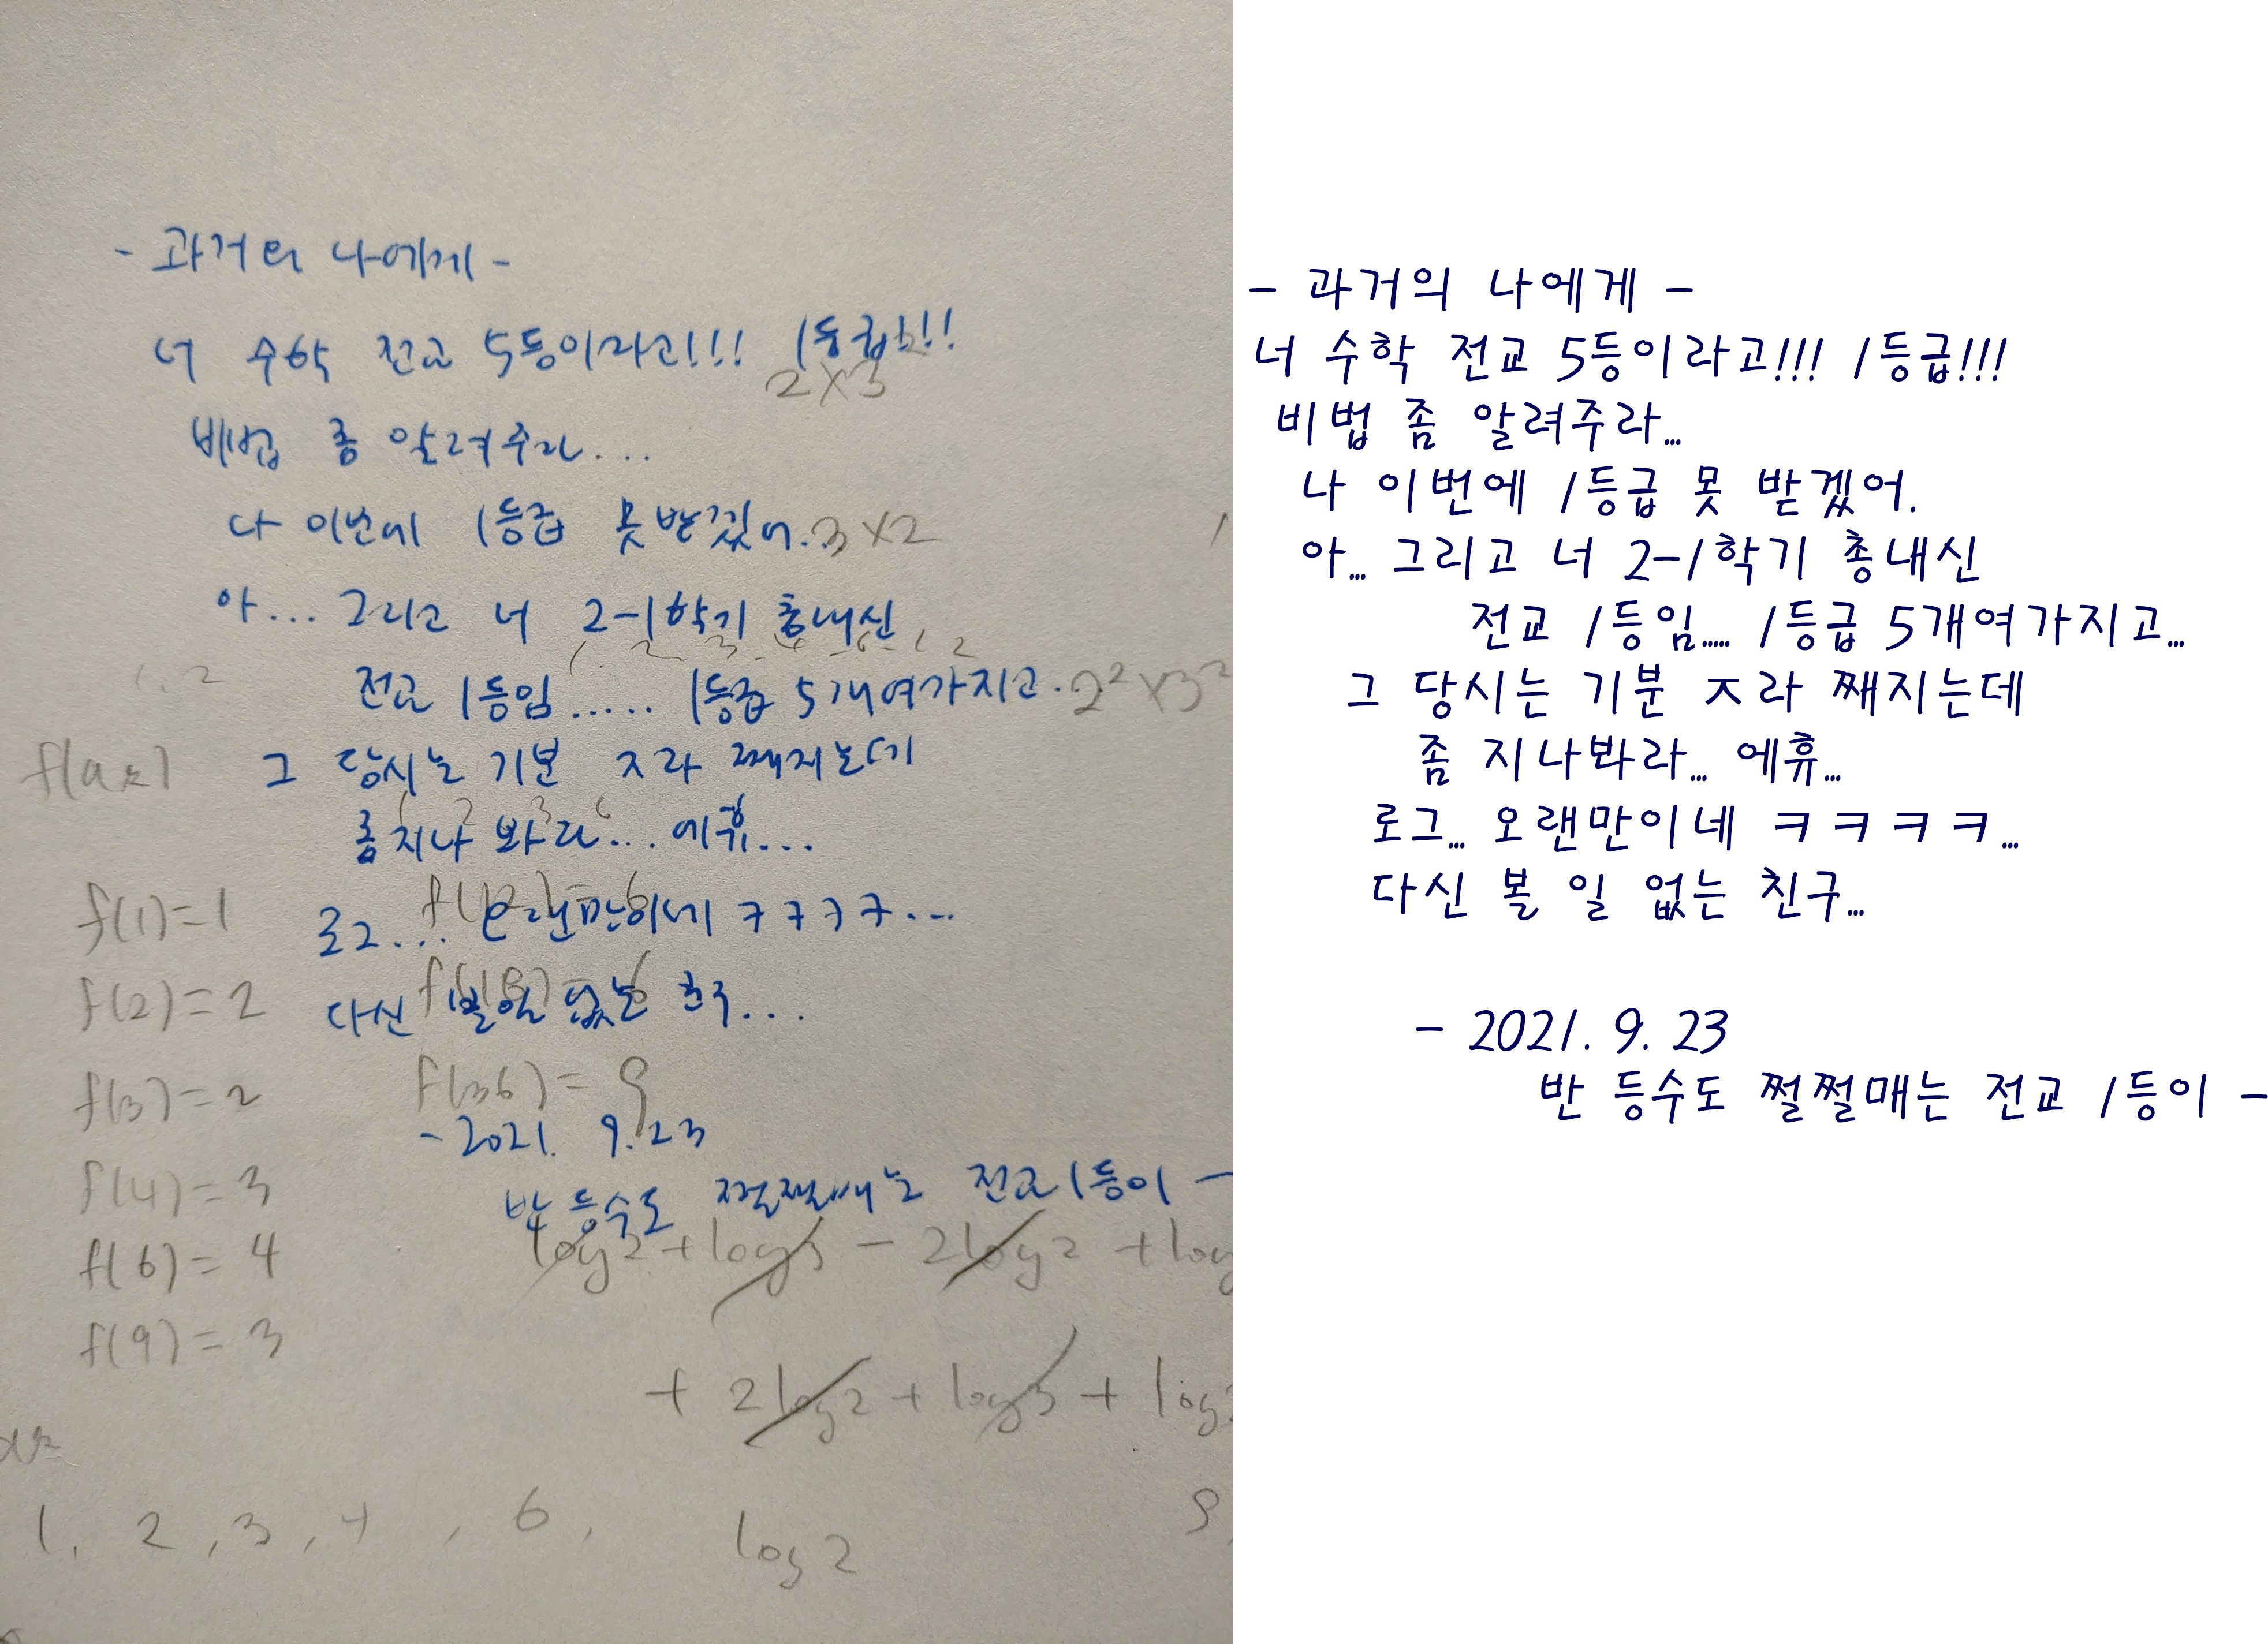 - 과거의 나에게 -
너 수학 전교 5등이라고!!! 1등급!!!
2×3
비법 좀 알려주라...
나 이번에 1등급 못 받겠어. 3×2
아... 그리고 너 2-1학기 총내신
1. 2
전교 1등임..... 1등급 5개여가지고. 2²×3²
그 당시는 기분 ㅈ라 째지는데
좀 지나 봐라... 에휴...
f(1)=1
로그... 오랜만이네 ㅋㅋㅋㅋ...
f(2)=2
다신 볼 일 없는 친구...
f(3)=2
f(36)=9
- 2021. 9. 23
f(4)=3
반 등수도 쩔쩔매는 전교 1등이 -
f(6)=4
log2+log3-2log2+log
f(9)=3
+2log2+log3+log
1, 2, 3, 4, 6, 9
log2
- 과거의 나에게 -
너 수학 전교 5등이라고!!! 1등급!!!
비법 좀 알려주라...
나 이번에 1등급 못 받겠어.
아... 그리고 너 2-1학기 총내신
전교 1등임..... 1등급 5개여가지고...
그 당시는 기분 ㅈ라 째지는데
좀 지나봐라... 에휴...
로그... 오랜만이네 ㅋㅋㅋㅋ...
다신 볼 일 없는 친구...
- 2021. 9. 23
반 등수도 쩔쩔매는 전교 1등이 -